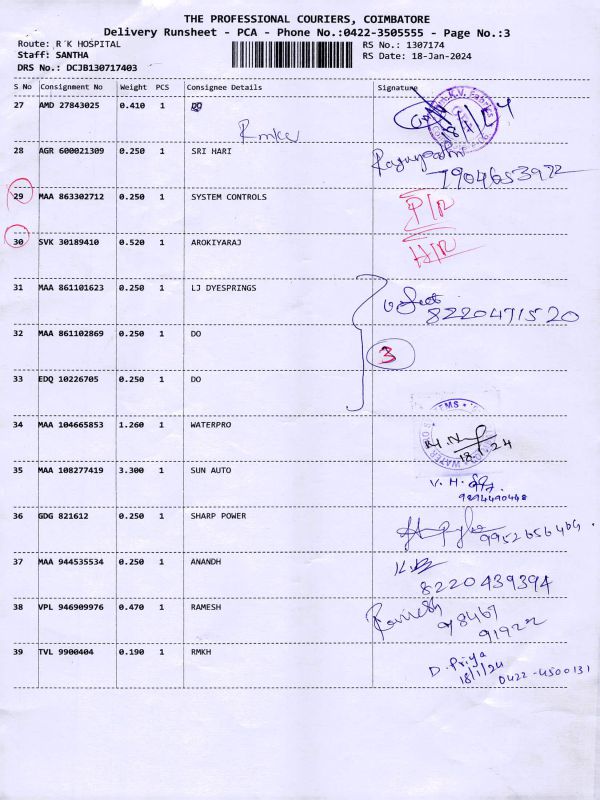 THE PROFESSIONAL COURIERS, COIMBATORE
Delivery Runsheet - PCA - Phone No.:0422-3505555 - Page No.:3
Route: R K HOSPITAL RS No.: 1307174
Staff: SANTHA RS Date: 18-Jan-2024
DRS No.: DCJB130717403
S No Consignment No Weight PCS Consignee Details Signature
27 AMD 27843025 0.410 1 DO
28 AGR 600021309 0.250 1 SRI HARI
7904653972
29 MAA 863302712 0.250 1 SYSTEM CONTROLS P/R
30 SVK 30189410 0.520 1 AROKIYARAJ H/R
31 MAA 861101623 0.250 1 LJ DYESPRINGS
8220471520
32 MAA 861102869 0.250 1 DO
3
33 EDQ 10226705 0.250 1 DO
34 MAA 104665853 1.260 1 WATERPRO
18.1.24
35 MAA 108277419 3.300 1 SUN AUTO V. H.
9894490448
36 GDG 821612 0.250 1 SHARP POWER
9952656464
37 MAA 944535534 0.250 1 ANANDH
8220439394
38 VPL 946909976 0.470 1 RAMESH Ramesh
98467
91922
39 TVL 9900404 0.190 1 RMKH D. Priya
18/1/24 0422-4500131